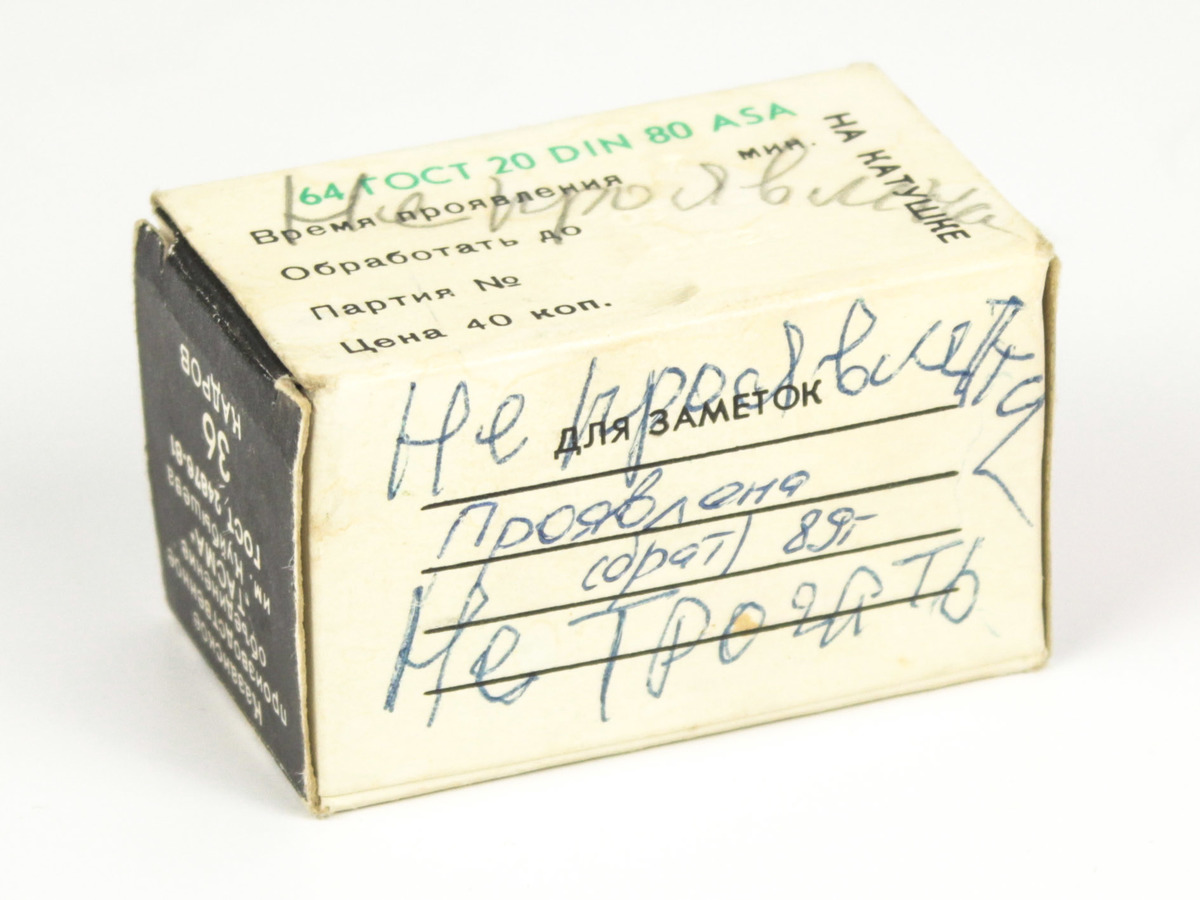 64 ГОСТ 20 DIN 80 ASA
Время проявления мин.
Не проявлена
Обработать до
Партия №
Цена 40 коп.
НА КАТУШКЕ
Не проявлена
ДЛЯ ЗАМЕТОК
Проявлена
(брат) 89г
Не Трогать
Казанское
производственное
объединение
"ТАСМА"
им. Куйбышева
ГОСТ 24876-81
36
КАДРОВ